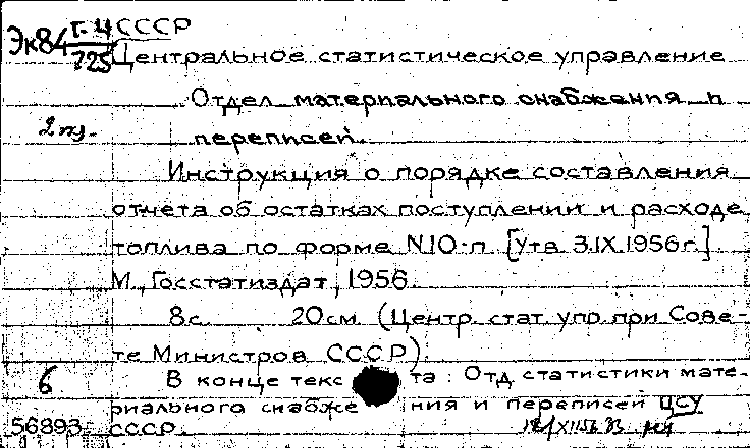 Эк84 Г-4 СССР
725 Центральное статистическое управление
Отдел материального снабжения и
2 пз. переписей.
Инструкция о порядке составления
отчета об остатках поступлении и расходе
топлива по форме N10-п [Утв 3.IX.1956г.]
М., Госстатиздат, 1956.
8с. 20см. (Центр. стат. упр. при Сове-
те Министров СССР).
6 В конце текс та: Отд. статистики мате-
риального снабже ния и переписей ЦСУ
56893 СССР.